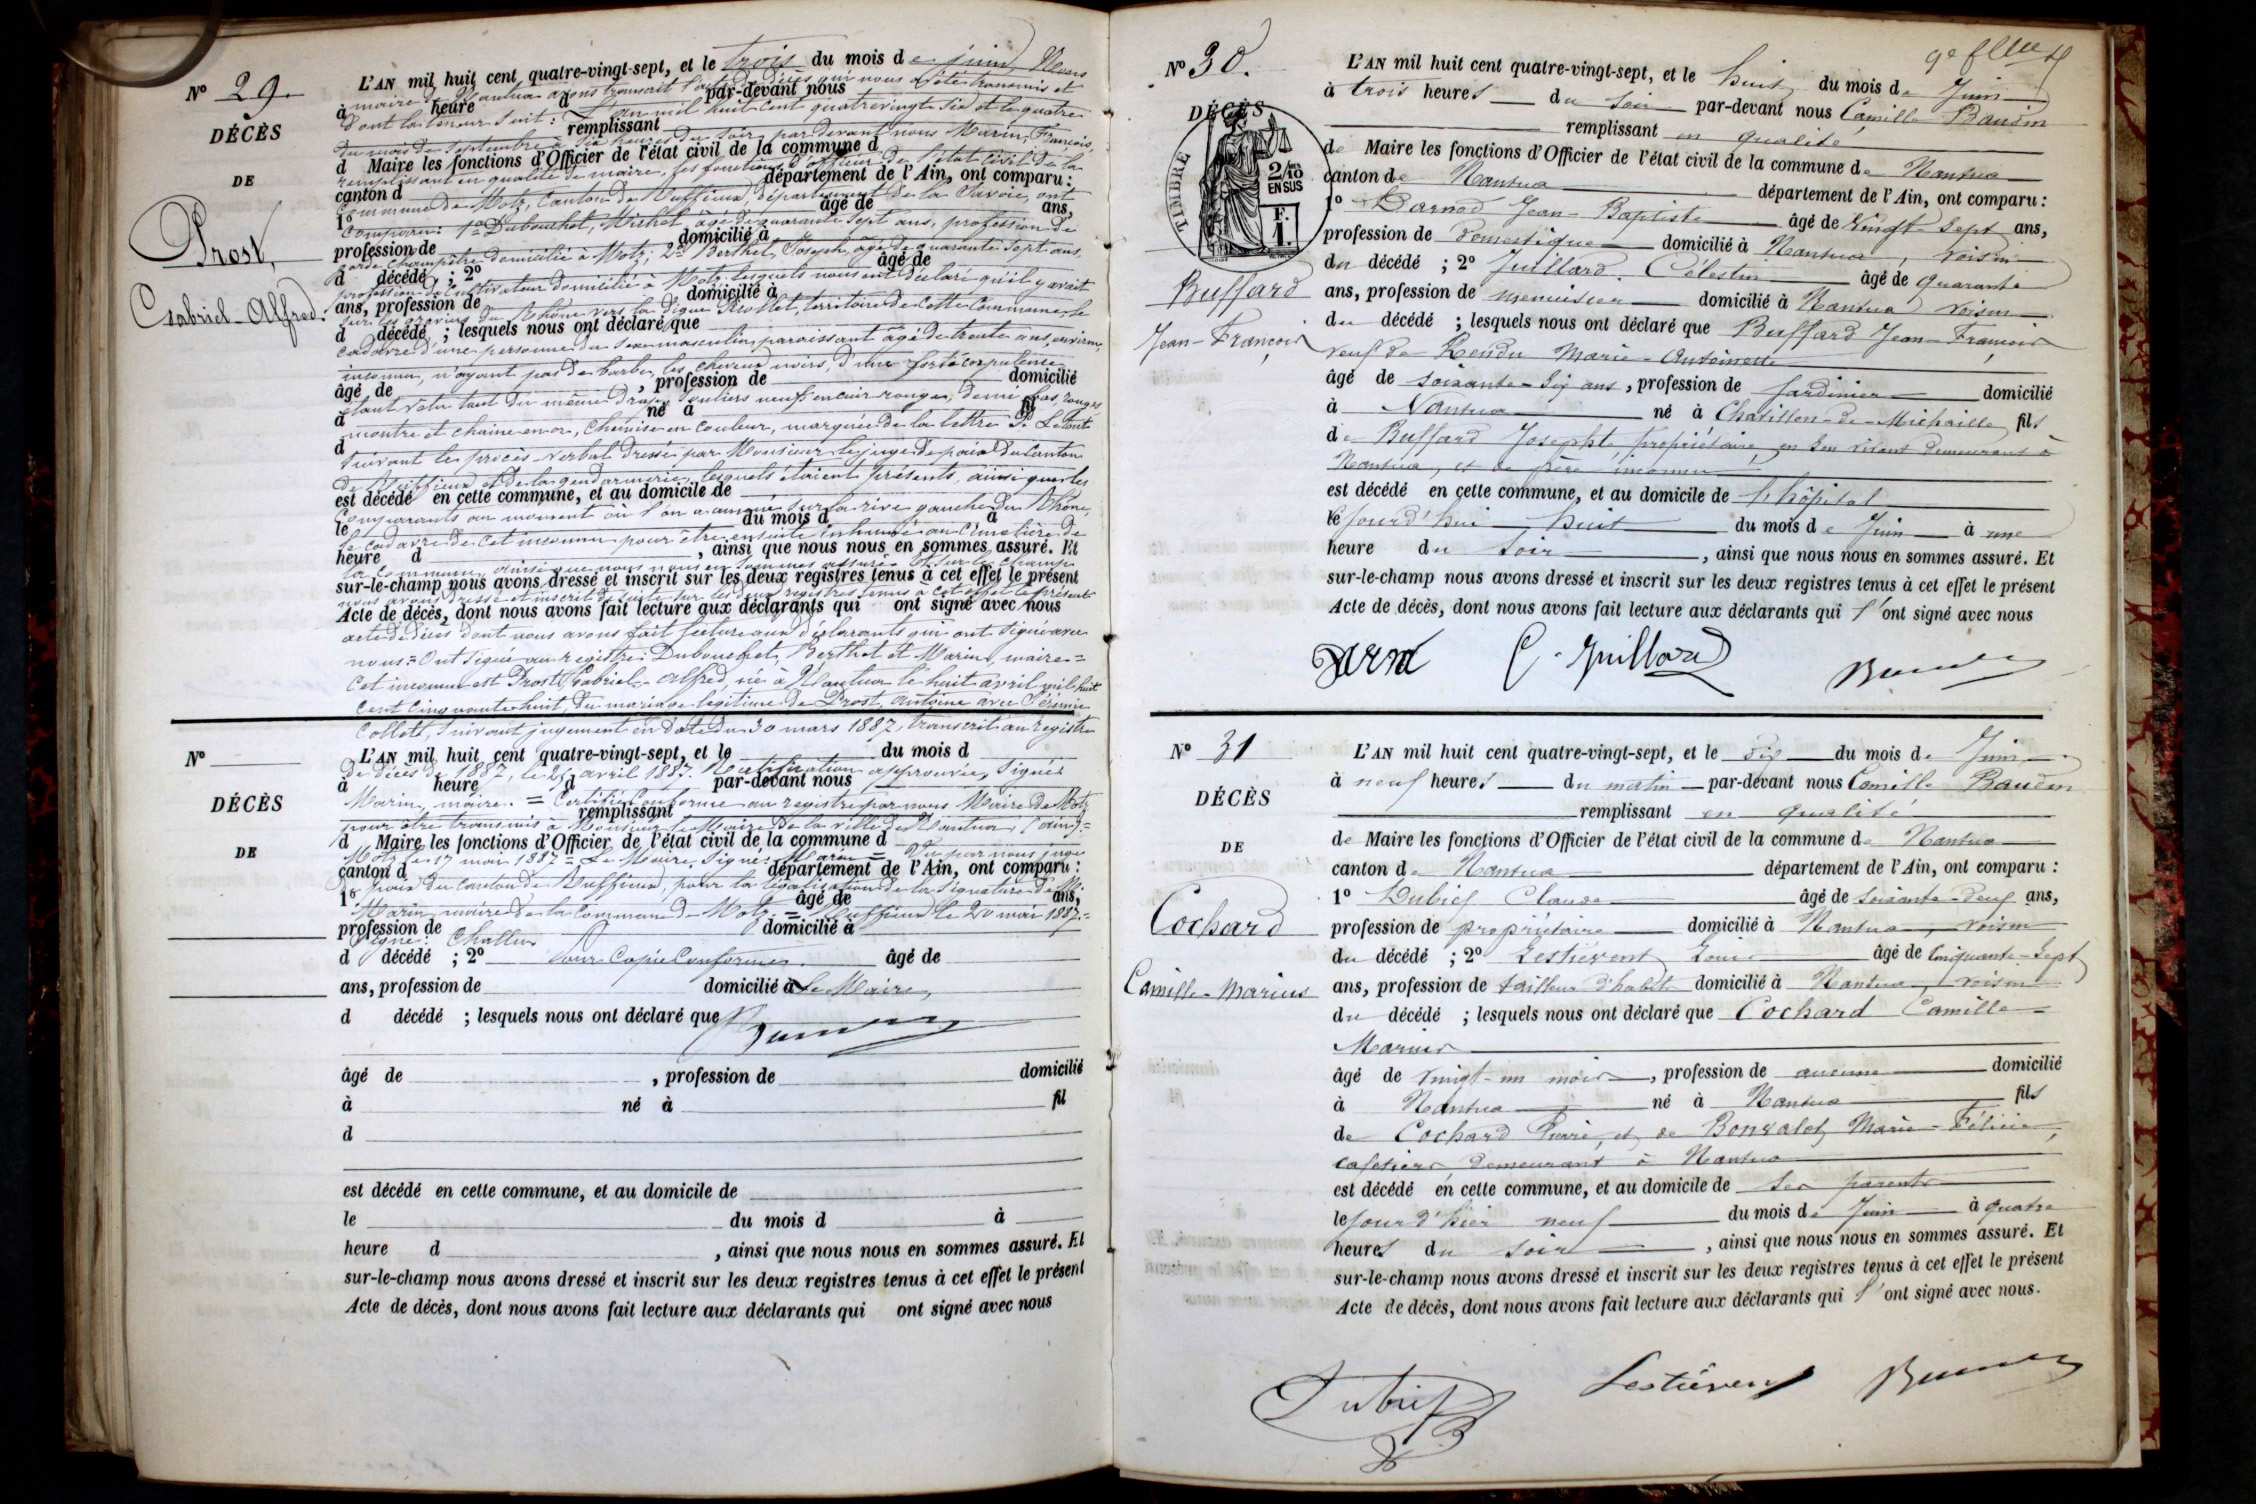 N° 29.
DÉCÈS
DE
Prost,
Gabriel-Alfred.
L'AN mil huit cent quatre-vingt-sept, et le trois du mois de juin, Nous
maire de Nantua avons transcrit l'acte de décès qui nous a été transmis et
à heure d par-devant nous
dont la teneur suit: L'an mil huit cent quatrevingt six et le quatre
remplissant
du mois de Septembre à six heures du soir, par devant nous Marin, François,
d Maire les fonctions d'Officier de l'état civil de la commune d
remplissant en qualité de maire, les fonctions d'officier de l'état civil de la
canton d département de l'Ain, ont comparu :
commune de Motz, Canton de Ruffieux, département de la Savoie, ont
1° âgé de ans,
comparu: 1° Dubouchet, Michel âgé de quarante sept ans, profession de
profession de domicilié à
garde champêtre domicilié à Motz; 2° Berthet Joseph, âgé de quarante sept ans
d décédé ; 2° âgé de
profession de cultivateur domicilié à Motz, lesquels nous ont déclaré qu'il y avait
ans, profession de domicilié à
sur les graviers du Rhône vers la digue Mollet, territoire de cette Commune, le
d décédé ; lesquels nous ont déclaré que
cadavre d'une personne du sexe masculin, paraissant âgé de trente ans, environ,
inconnu, n'ayant pas de barbe, les cheveux noirs, d'une forte corpulence
âgé de , profession de domicilié
étant vêtu tout du même drap, souliers neufs en cuir rouge, demi bas, rouges
à né à fil
montre et chaine en or, chemise en couleur, marquée de la lettre P. Le tout
d
suivant le procès-verbal dressé par Monsieur le juge de paix du Canton
de Ruffieux et de la gendarmerie, lesquels étaient présents, ainsi que les
est décédé en cette commune, et au domicile de
comparants au moment où l'on a amené sur la rive gauche du Rhône,
le du mois d à
le cadavre de cet inconnu pour être ensuite inhumé au Cimetière de
heure d , ainsi que nous nous en sommes assuré. Et
la commune, ainsi que nous nous en sommes assuré. Et sur le champ
sur-le-champ nous avons dressé et inscrit sur les deux registres tenus à cet effet le présent
nous avons dressé et inscrit de suite sur les deux registres tenus à cet effet le présent
Acte de décès, dont nous avons fait lecture aux déclarants qui ont signé avec nous
acte de décès dont nous avons fait lecture aux déclarants qui ont signé avec
nous = Ont signé au registre: Dubouchet, Berthet et Marin, maire =
Cet inconnu est Prost Gabriel-Alfred né à Nantua le huit avril mil huit
cent cinquante huit, du mariage légitime de Prost, Antoine avec
Collett, suivant jugement en date du 30 mars 1887, transcrit au registre
N°
DÉCÈS
DE
L'AN mil huit cent quatre-vingt-sept, et le du mois d
de décès de 1887, le 21 avril 1887. Rectification approuvée, signé:
à heure d par-devant nous
Marin, maire. = Certifié conforme au registre par nous Maire de Motz
remplissant
pour être transmis à Monsieur le Maire de la ville de Nantua, (ain) =
d Maire les fonctions d'Officier de l'état civil de la commune d
Motz, le 17 mai 1887 = Le Maire, Signé: Marin = Vu par nous juge
canton d département de l'Ain, ont comparu :
de paix du canton de Ruffieux, pour la légalisation de la signature de M.
1° âgé de ans,
Marin, maire de la commune de Motz. = Ruffieux le 20 mai 1887. =
profession de domicilié à
Signé: Challin
d décédé ; 2° Pour Copie Conforme. âgé de
ans, profession de domicilié à Le Maire,
d décédé ; lesquels nous ont déclaré que
âgé de , profession de domicilié
à né à fil
d
est décédé en cette commune, et au domicile de
le du mois d à
heure d , ainsi que nous nous en sommes assuré. Et
sur-le-champ nous avons dressé et inscrit sur les deux registres tenus à cet effet le présent
Acte de décès, dont nous avons fait lecture aux déclarants qui ont signé avec nous
N° 30.
DÉCÈS
TIMBRE
2/10 EN SUS
F. 1.
Buffard
Jean-François
L'AN mil huit cent quatre-vingt-sept, et le huit du mois de Juin
à trois heures du soir par-devant nous Camille Baudin
remplissant en qualité
de Maire les fonctions d'Officier de l'état civil de la commune de Nantua
canton de Nantua département de l'Ain, ont comparu :
1° Darnod Jean-Baptiste âgé de Vingt-sept ans,
profession de domestique domicilié à Nantua, voisin
du décédé ; 2° Juillard Célestin âgé de quarante
ans, profession de menuisier domicilié à Nantua voisin
du décédé ; lesquels nous ont déclaré que Buffard Jean-François
veuf de Rendu Marie-Antoinette
âgé de soixante-six ans, profession de jardinier domicilié
à Nantua né à Chatillon-de-Michaille fils
de Buffard Josephte propriétaire, en son vivant demeurant à
Nantua, et de père inconnu
est décédé en cette commune, et au domicile de l'hôpital
le jourd'hui huit du mois de Juin à une
heure du soir , ainsi que nous nous en sommes assuré. Et
sur-le-champ nous avons dressé et inscrit sur les deux registres tenus à cet effet le présent
Acte de décès, dont nous avons fait lecture aux déclarants qui l'ont signé avec nous
C. Juillard
N° 31
DÉCÈS
DE
Cochard
Camille-Marius
L'AN mil huit cent quatre-vingt-sept, et le dix du mois de Juin
à neuf heures du matin par-devant nous Camille Baudin
remplissant en qualité
de Maire les fonctions d'Officier de l'état civil de la commune de Nantua
canton de Nantua département de l'Ain, ont comparu :
1° Dubief Claude âgé de soixante-deux ans,
profession de propriétaire domicilié à Nantua, voisin
du décédé ; 2° Lestiévent Louis âgé de Cinquante-sept
ans, profession de tailleur d'habits domicilié à Nantua, voisin
du décédé ; lesquels nous ont déclaré que Cochard Camille-
Marius
âgé de vingt-un mois, profession de aucune domicilié
à Nantua né à Nantua fils
de Cochard Pierre, et de Bonvalot Marie-Félicie,
cafetiers demeurant à Nantua
est décédé en cette commune, et au domicile de ses parents
le jour d'hier neuf du mois de Juin à quatre
heures du soir , ainsi que nous nous en sommes assuré. Et
sur-le-champ nous avons dressé et inscrit sur les deux registres tenus à cet effet le présent
Acte de décès, dont nous avons fait lecture aux déclarants qui l'ont signé avec nous.
Dubief
Lestiévent